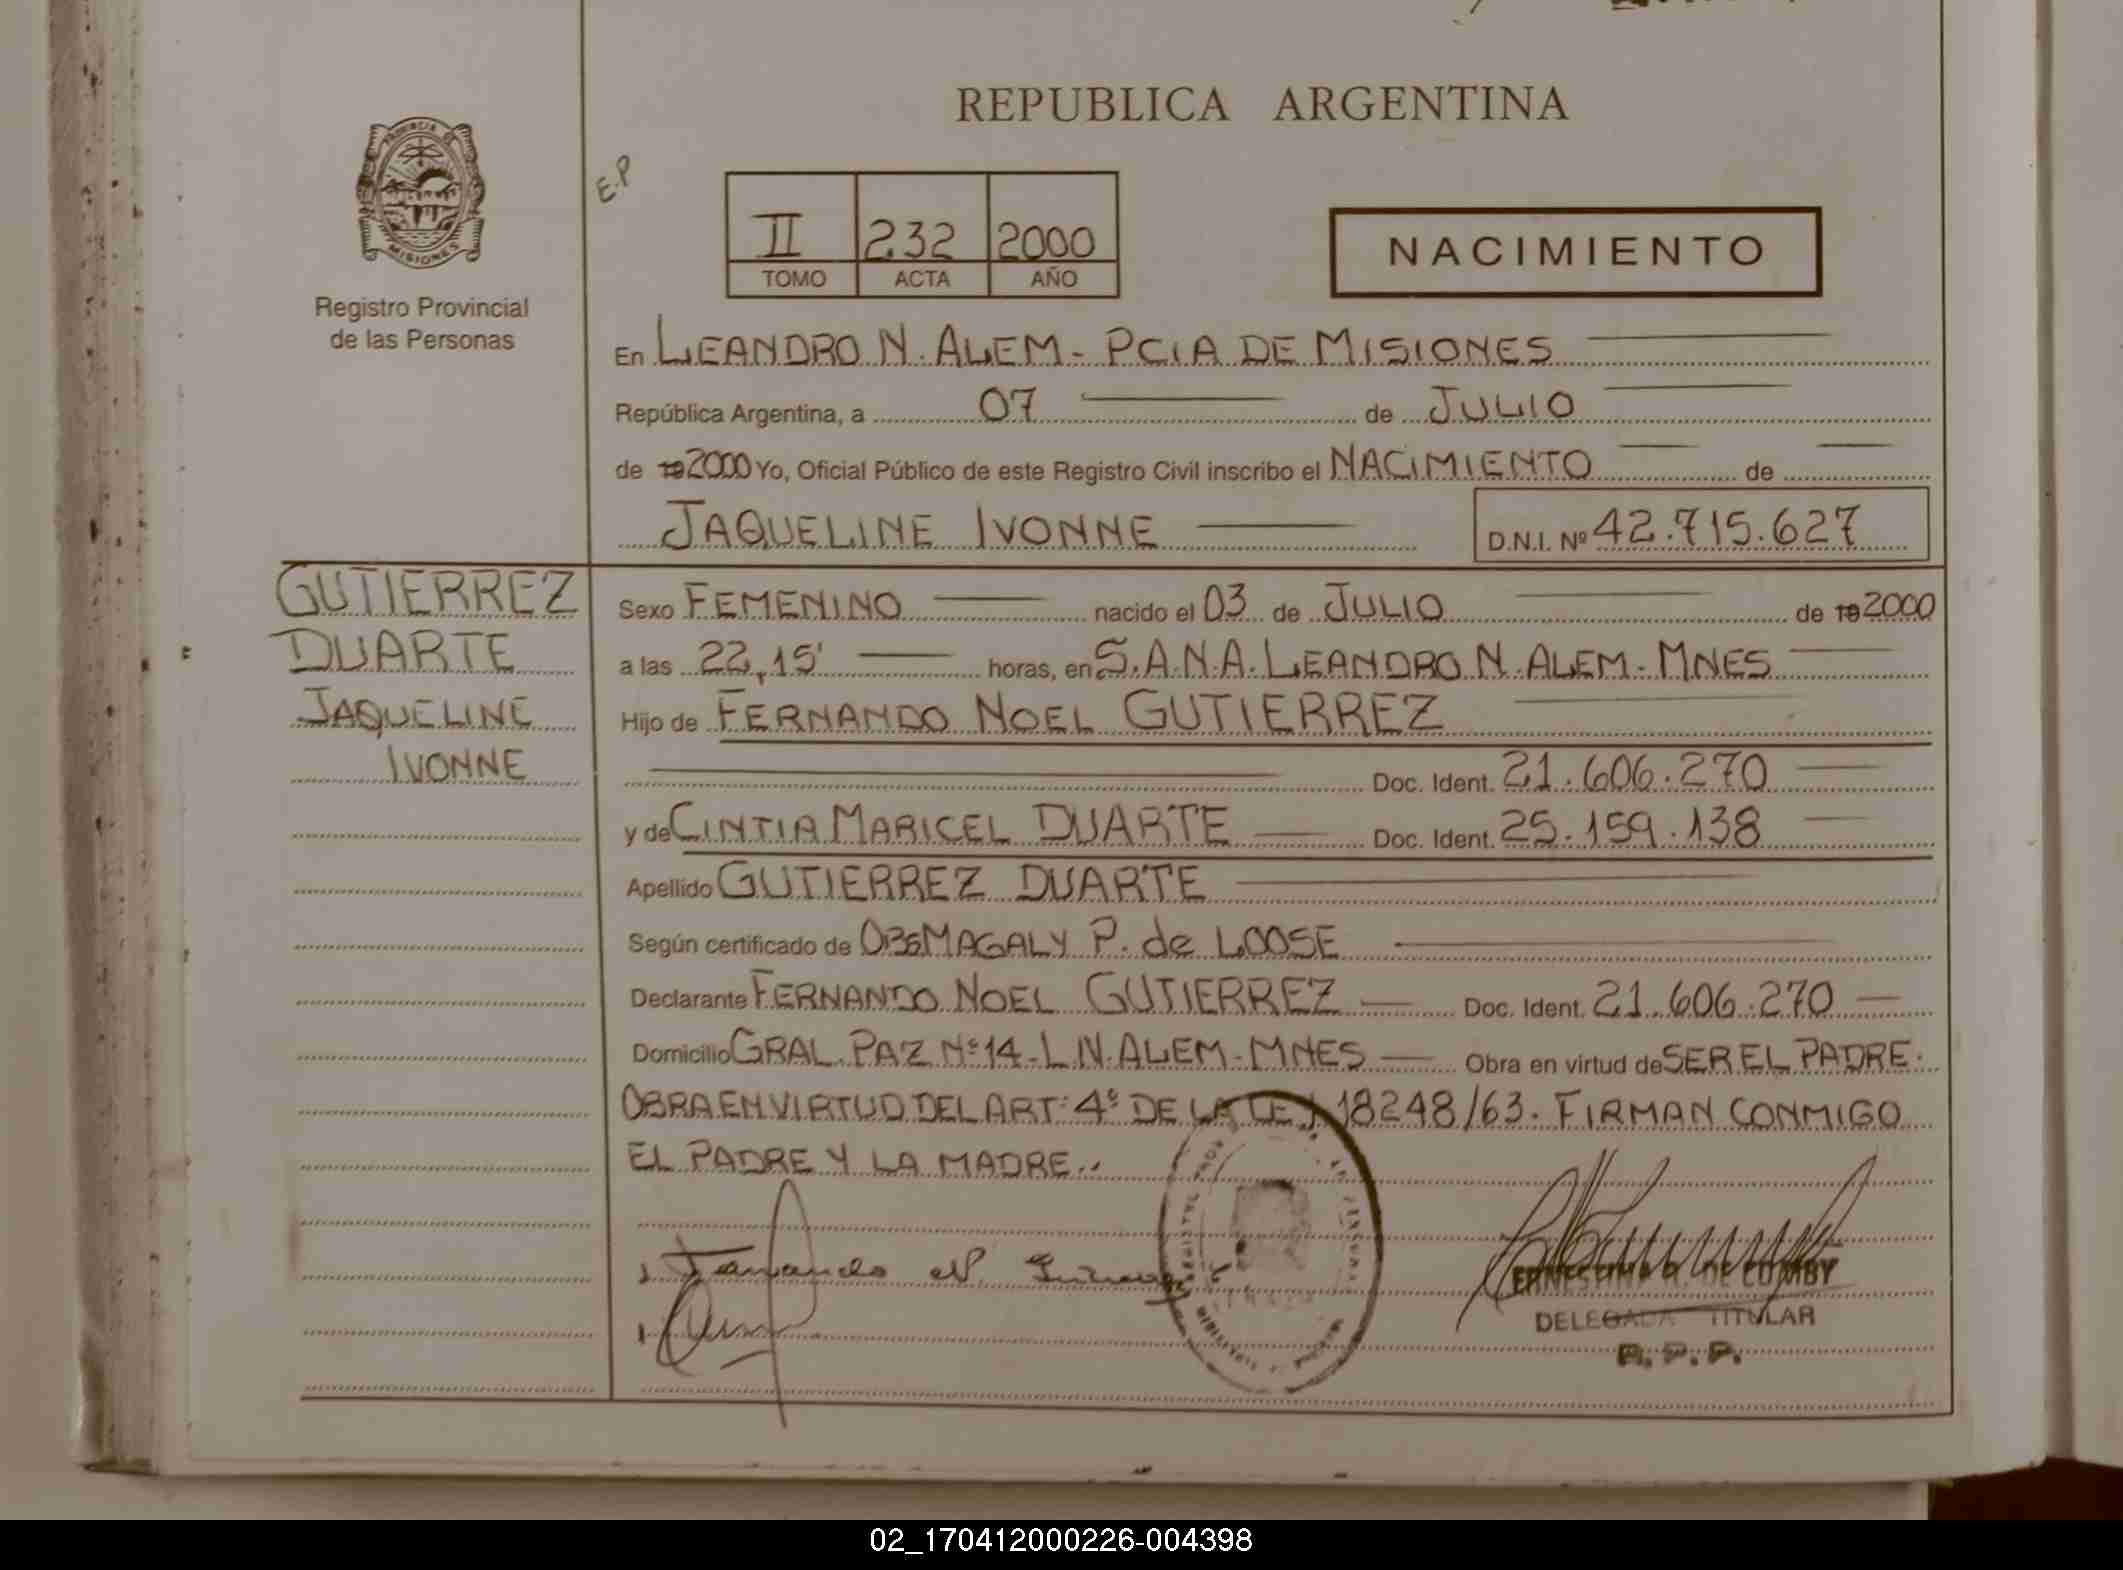 REPUBLICA ARGENTINA
PROVINCIA DE
MISIONES
Registro Provincial
de las Personas
E.P
II 232 2000
TOMO ACTA AÑO
NACIMIENTO
En LEANDRO N. ALEM - PCIA DE MISIONES
República Argentina, a 07 de JULIO
de 19 2000 Yo, Oficial Público de este Registro Civil inscribo el NACIMIENTO de
JAQUELINE IVONNE D.N.I. Nº 42.715.627
GUTIERREZ
DUARTE
JAQUELINE
IVONNE
Sexo FEMENINO nacido el 03 de JULIO de 19 2000
a las 22,15' horas, en S.A.N.A. LEANDRO N. ALEM - MNES
Hijo de FERNANDO NOEL GUTIERREZ
Doc. Ident. 21.606.270
y de CINTIA MARICEL DUARTE Doc. Ident. 25.159.138
Apellido GUTIERREZ DUARTE
Según certificado de OBS MAGALY P. de LOOSE
Declarante FERNANDO NOEL GUTIERREZ Doc. Ident. 21.606.270
Domicilio GRAL. PAZ Nº 14 - L.N. ALEM - MNES Obra en virtud de SER EL PADRE.
OBRA EN VIRTUD DEL ART: 4º DE LA LEY 18248/63. FIRMAN CONMIGO
EL PADRE Y LA MADRE..
DELEGADA TITULAR
R.P.P.
02_170412000226-004398